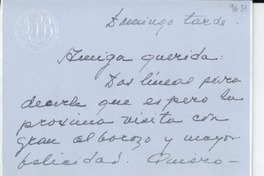 Domingo tarde.
Amiga querida:
Dos líneas para
decirle que espero la
proxima visita con
gran alborozo y mayor
felicidad. Quiero-